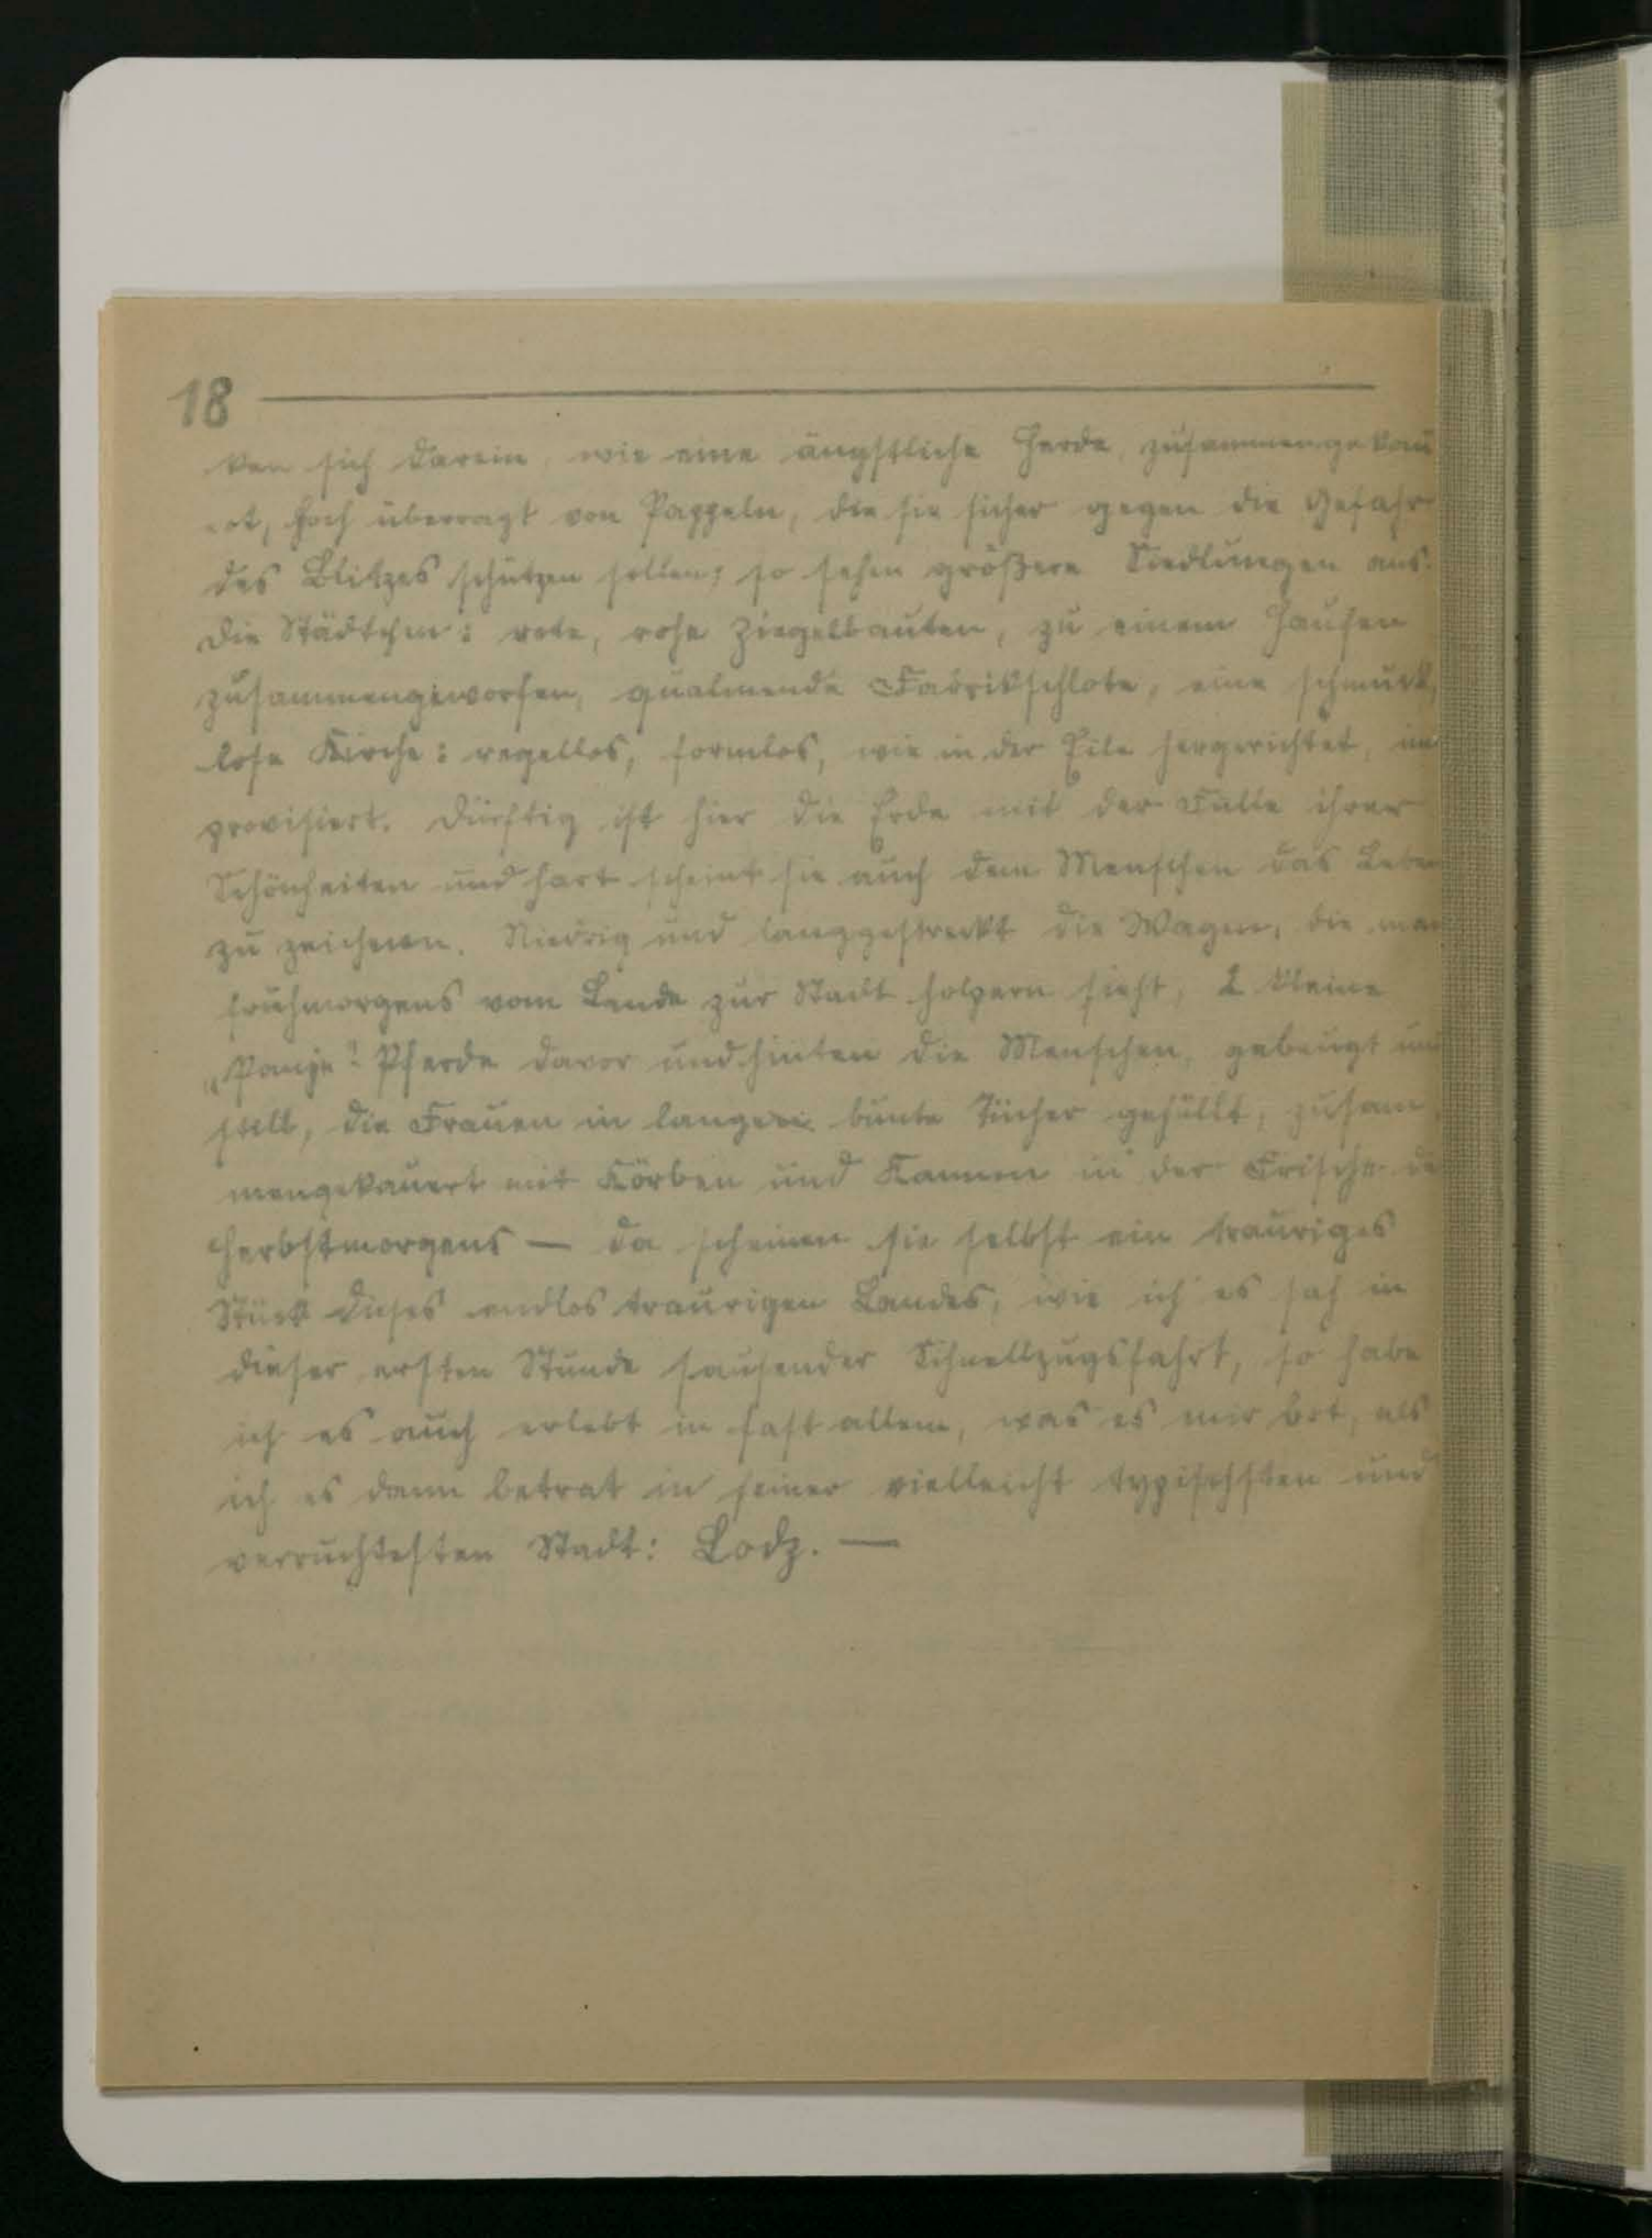 18
ken sich darein, wie eine ängstliche Herde, zusammengekau
ert, hoch überragt von Pappeln, die sie sicher gegen die Gefahr
des Blitzes schützen sollen; so sehen größere Siedlungen aus.
Die Städtchen: rote, rohe Ziegelbauten, zu einem Haufen
zusammengeworfen, qualmende Fabrikschlote, eine schmuck
lose Kirche: regellos, formlos, wie in der Eile hergerichtet, im
provisiert. Dürftig ist hier die Erde mit der Fülle ihrer
Schönheiten und hart scheint sie auch dem Menschen das Leben
zu zeichnen. Niedrig und langgestreckt die Wagen, die man
frühmorgens vom Lande zur Stadt holpern sieht, 2 kleine
„Panje" Pferde davor und hinten die Menschen, gebeugt und
still, die Frauen in lange bunte Tücher gehüllt, zusam
mengekauert mit Körben und Kannen in der Frische de
Herbstmorgens — da scheinen sie selbst ein trauriges
Stück dieses endlos traurigen Landes, wie ich es sah in
dieser ersten Stunde sausender Schnellzugsfahrt, so habe
ich es auch erlebt in fast allem, was es mir bot, als
ich es dann betrat in seiner vielleicht typischsten und
verruchtesten Stadt: Lodz. —